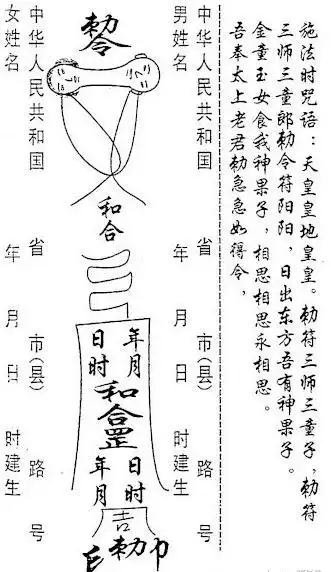 施法时咒语：天皇皇地皇皇。勅符三师三童子，勅符
三师三童郎勅令符阳阳，日出东方吾有神果子。
金童玉女食我神果子，相思相思永相思。
吾奉太上老君勅急急如得令，
中华人民共和国 省 市(县) 路 号
男姓名 年 月 日 时建生
勅令
和合
年月
日时
和合罡
日时
年月
吉
勅
中华人民共和国 省 市(县) 路 号
女姓名 年 月 日 时建生